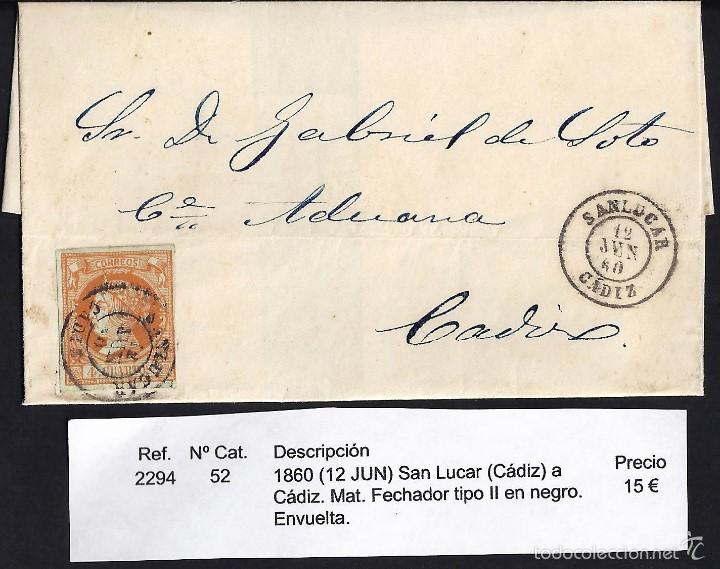 Sr. D. Gabriel de Soto
Cª Aduana
Cadiz.
SANLUCAR
12
JUN
60
CADIZ
CORREOS
Ref.
Nº Cat.
Descripción
Precio
2294
52
1860 (12 JUN) San Lucar (Cádiz) a
15 €
Cádiz. Mat. Fechador tipo II en negro.
Envuelta.
todocoleccion.net
TC